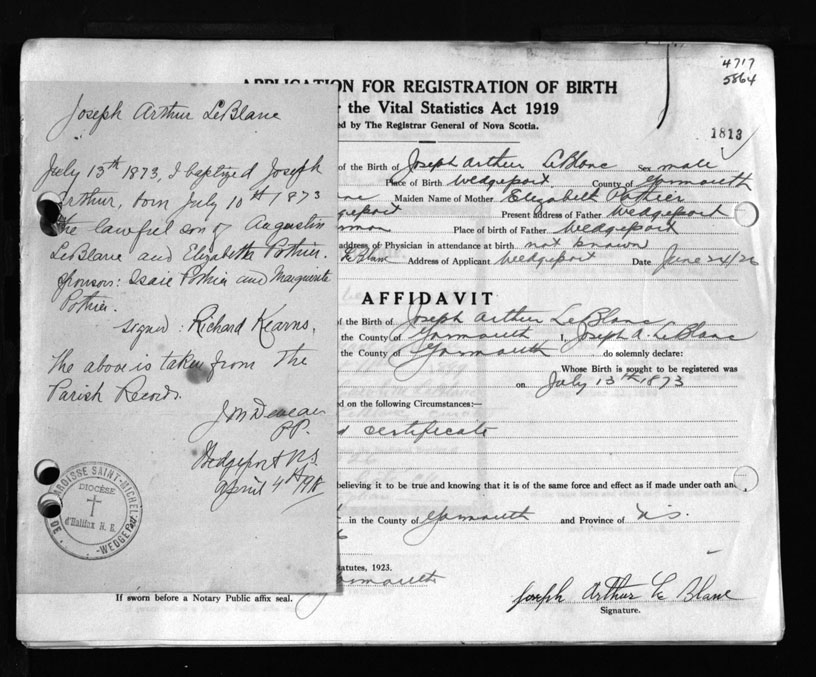 4717
5864
1813
APPLICATION FOR REGISTRATION OF BIRTH
r the Vital Statistics Act 1919
ed by The Registrar General of Nova Scotia.
Joseph Arthur LeBlanc
July 13th 1873, I baptized Joseph
Arthur, born July 10th 1873
the lawful son of Augustin
LeBlanc and Elizabeth Pothier.
Sponsors: Isaie Pothier and Marguerite
Pothier.
Signed: Richard Kearns.
The above is taken from the
Parish Records.
P.P.
Wedgeport N.S.
April 4th
PAROISSE SAINT-MICHEL
DIOCÈSE
d'Halifax N. E.
DE WEDGEPORT
of the Birth of Joseph Arthur LeBlanc Sex male
Place of Birth Wedgeport. County of Yarmouth
Maiden Name of Mother Elizabeth Pothier
Present address of Father Wedgeport
Place of birth of Father Wedgeport
address of Physician in attendance at birth not known
LeBlanc Address of Applicant Wedgeport Date June 24/26
AFFIDAVIT
of the Birth of Joseph Arthur LeBlanc
the County of Yarmouth I, Joseph A. LeBlanc
the County of Yarmouth do solemnly declare:
Whose Birth is sought to be registered was
on July 13th 1873
d on the following Circumstances:—
certificate
believing it to be true and knowing that it is of the same force and effect as if made under oath and
in the County of Yarmouth and Province of N.S.
tatutes, 1923.
Yarmouth
If sworn before a Notary Public affix seal.
Joseph Arthur Le Blanc
Signature.